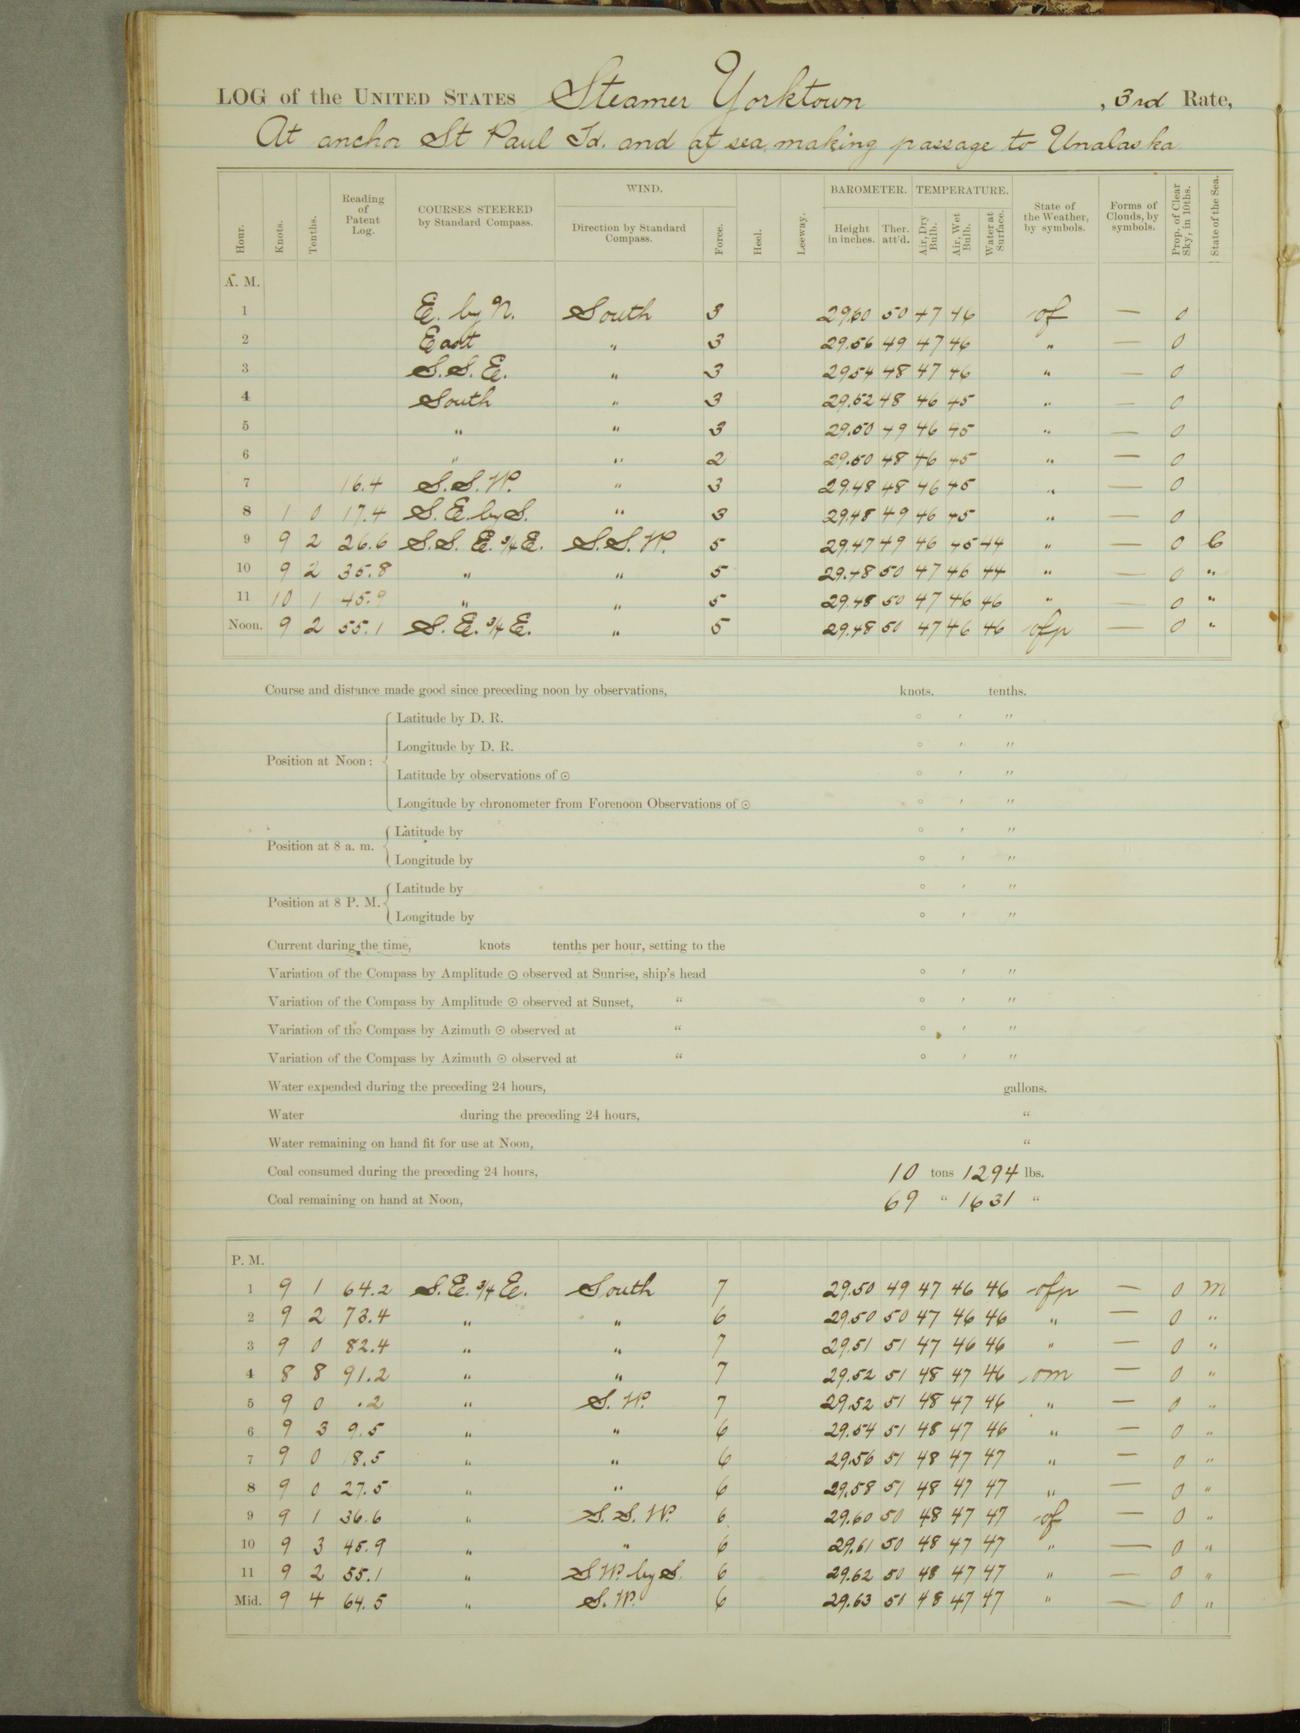 LOG of the UNITED STATES Steamer Yorktown, 3rd Rate,
At anchor St Paul Id. and at sea making passage to Unalaska
Hour. Knots. Tenths. Reading of Patent Log. COURSES STEERED by Standard Compass. WIND. Direction by Standard Compass. Force. Heel. Leeway. BAROMETER. Height in inches. Ther. att'd. TEMPERATURE. Air, Dry Bulb. Air, Wet Bulb. Water at Surface. State of the Weather, by symbols. Forms of Clouds, by symbols. Prop. of Clear Sky, in 10ths. State of the Sea.
A. M.
1 E. by N. South 3 29.60 50 47 46 of — 0
2 East " 3 29.56 49 47 46 " — 0
3 S.S.E. " 3 29.54 48 47 46 " — 0
4 South " 3 29.52 48 46 45 " — 0
5 " " 3 29.50 49 46 45 " — 0
6 " " 2 29.50 48 46 45 " — 0
7 16.4 S.S.W. " 3 29.48 48 46 45 " — 0
8 1 0 17.4 S.E. by S. " 3 29.48 49 46 45 " — 0
9 9 2 26.6 S.S.E. 3/4 E. S.S.W. 5 29.47 49 46 45 44 " — 0 C
10 9 2 35.8 " " 5 29.48 50 47 46 44 " — 0 "
11 10 1 45.9 " " 5 29.48 50 47 46 46 " — 0 "
Noon. 9 2 55.1 S.E. 3/4 E. " 5 29.48 50 47 46 46 ofp — 0 "
Course and distance made good since preceding noon by observations, knots. tenths.
Position at Noon: Latitude by D. R. ° ′ ″
Longitude by D. R. ° ′ ″
Latitude by observations of ☉ ° ′ ″
Longitude by chronometer from Forenoon Observations of ☉ ° ′ ″
Position at 8 a. m. Latitude by ° ′ ″
Longitude by ° ′ ″
Position at 8 P. M. Latitude by ° ′ ″
Longitude by ° ′ ″
Current during the time, knots tenths per hour, setting to the
Variation of the Compass by Amplitude ☉ observed at Sunrise, ship's head ° ′ ″
Variation of the Compass by Amplitude ☉ observed at Sunset, " ° ′ ″
Variation of the Compass by Azimuth ☉ observed at " ° ′ ″
Variation of the Compass by Azimuth ☉ observed at " ° ′ ″
Water expended during the preceding 24 hours, gallons.
Water during the preceding 24 hours, "
Water remaining on hand fit for use at Noon, "
Coal consumed during the preceding 24 hours, 10 tons 1294 lbs.
Coal remaining on hand at Noon, 69 " 1631 "
P. M.
1 9 1 64.2 S.E. 3/4 E. South 7 29.50 49 47 46 46 ofp — 0 m
2 9 2 73.4 " " 6 29.50 50 47 46 46 " — 0 "
3 9 0 82.4 " " 7 29.51 51 47 46 46 " — 0 "
4 8 8 91.2 " " 7 29.52 51 48 47 46 om — 0 "
5 9 0 .2 " S.W. 7 29.52 51 48 47 46 " — 0 "
6 9 3 9.5 " " 6 29.54 51 48 47 46 " — 0 "
7 9 0 18.5 " " 6 29.56 51 48 47 47 " — 0 "
8 9 0 27.5 " " 6 29.58 51 48 47 47 " — 0 "
9 9 1 36.6 " S.S.W. 6 29.60 50 48 47 47 of — 0 "
10 9 3 45.9 " " 6 29.61 50 48 47 47 " — 0 "
11 9 2 55.1 " S.W. by S. 6 29.62 50 48 47 47 " — 0 "
Mid. 9 4 64.5 " S.W. 6 29.63 50 48 47 47 " — 0 "